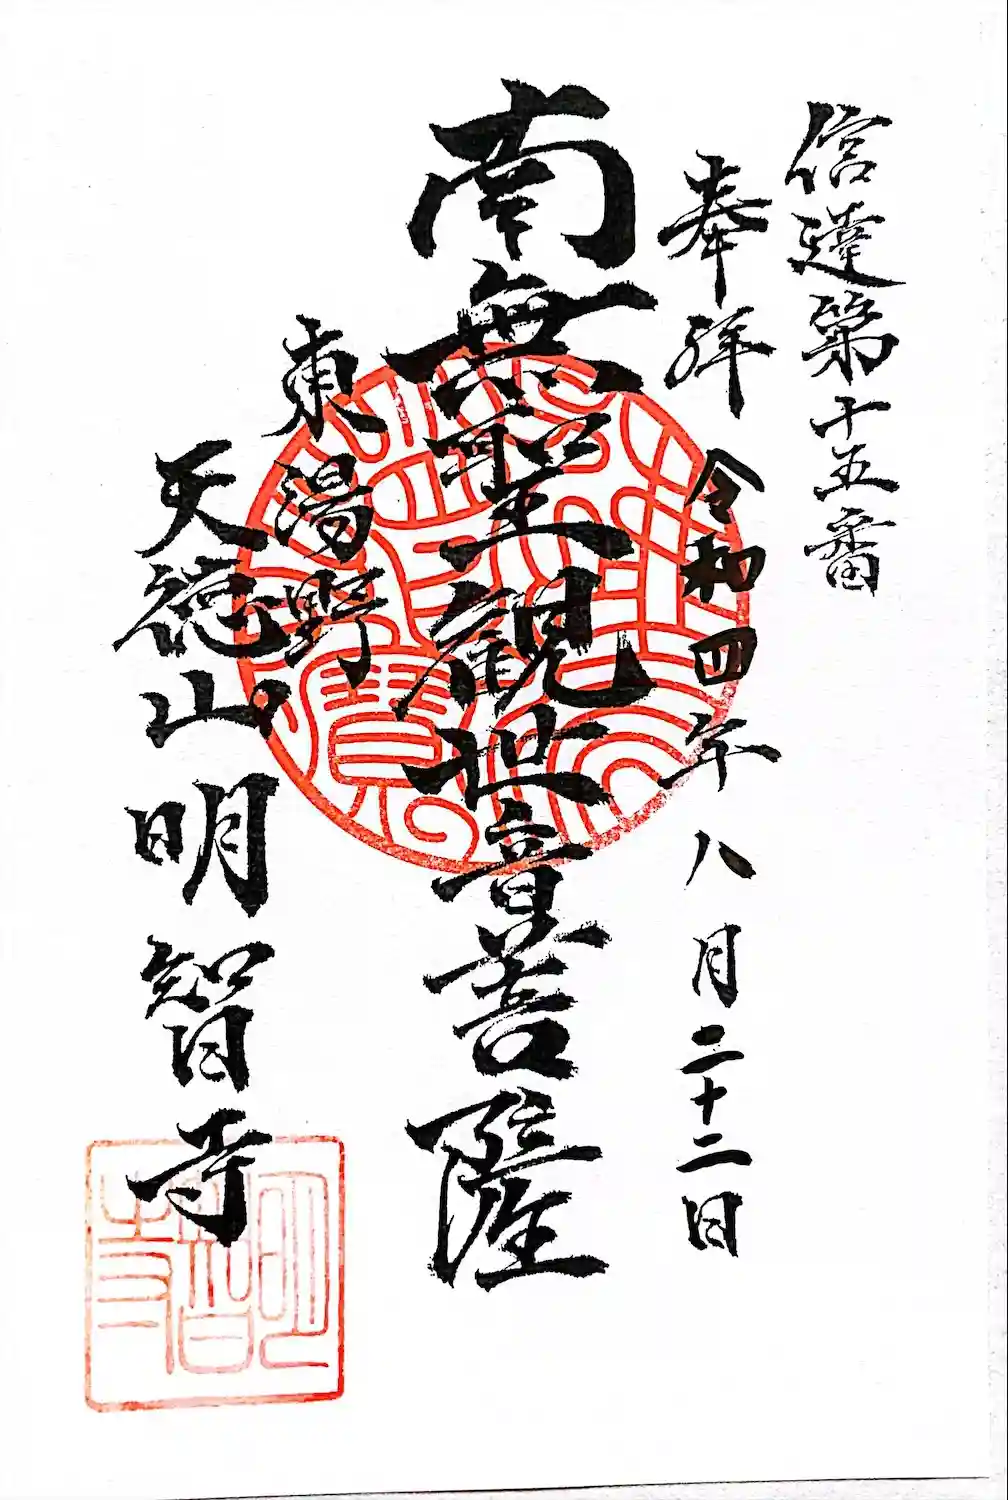 信達第十五番
奉拝
令和四年八月二十二日
南無聖観世音菩薩
東湯野
天徳山明智寺